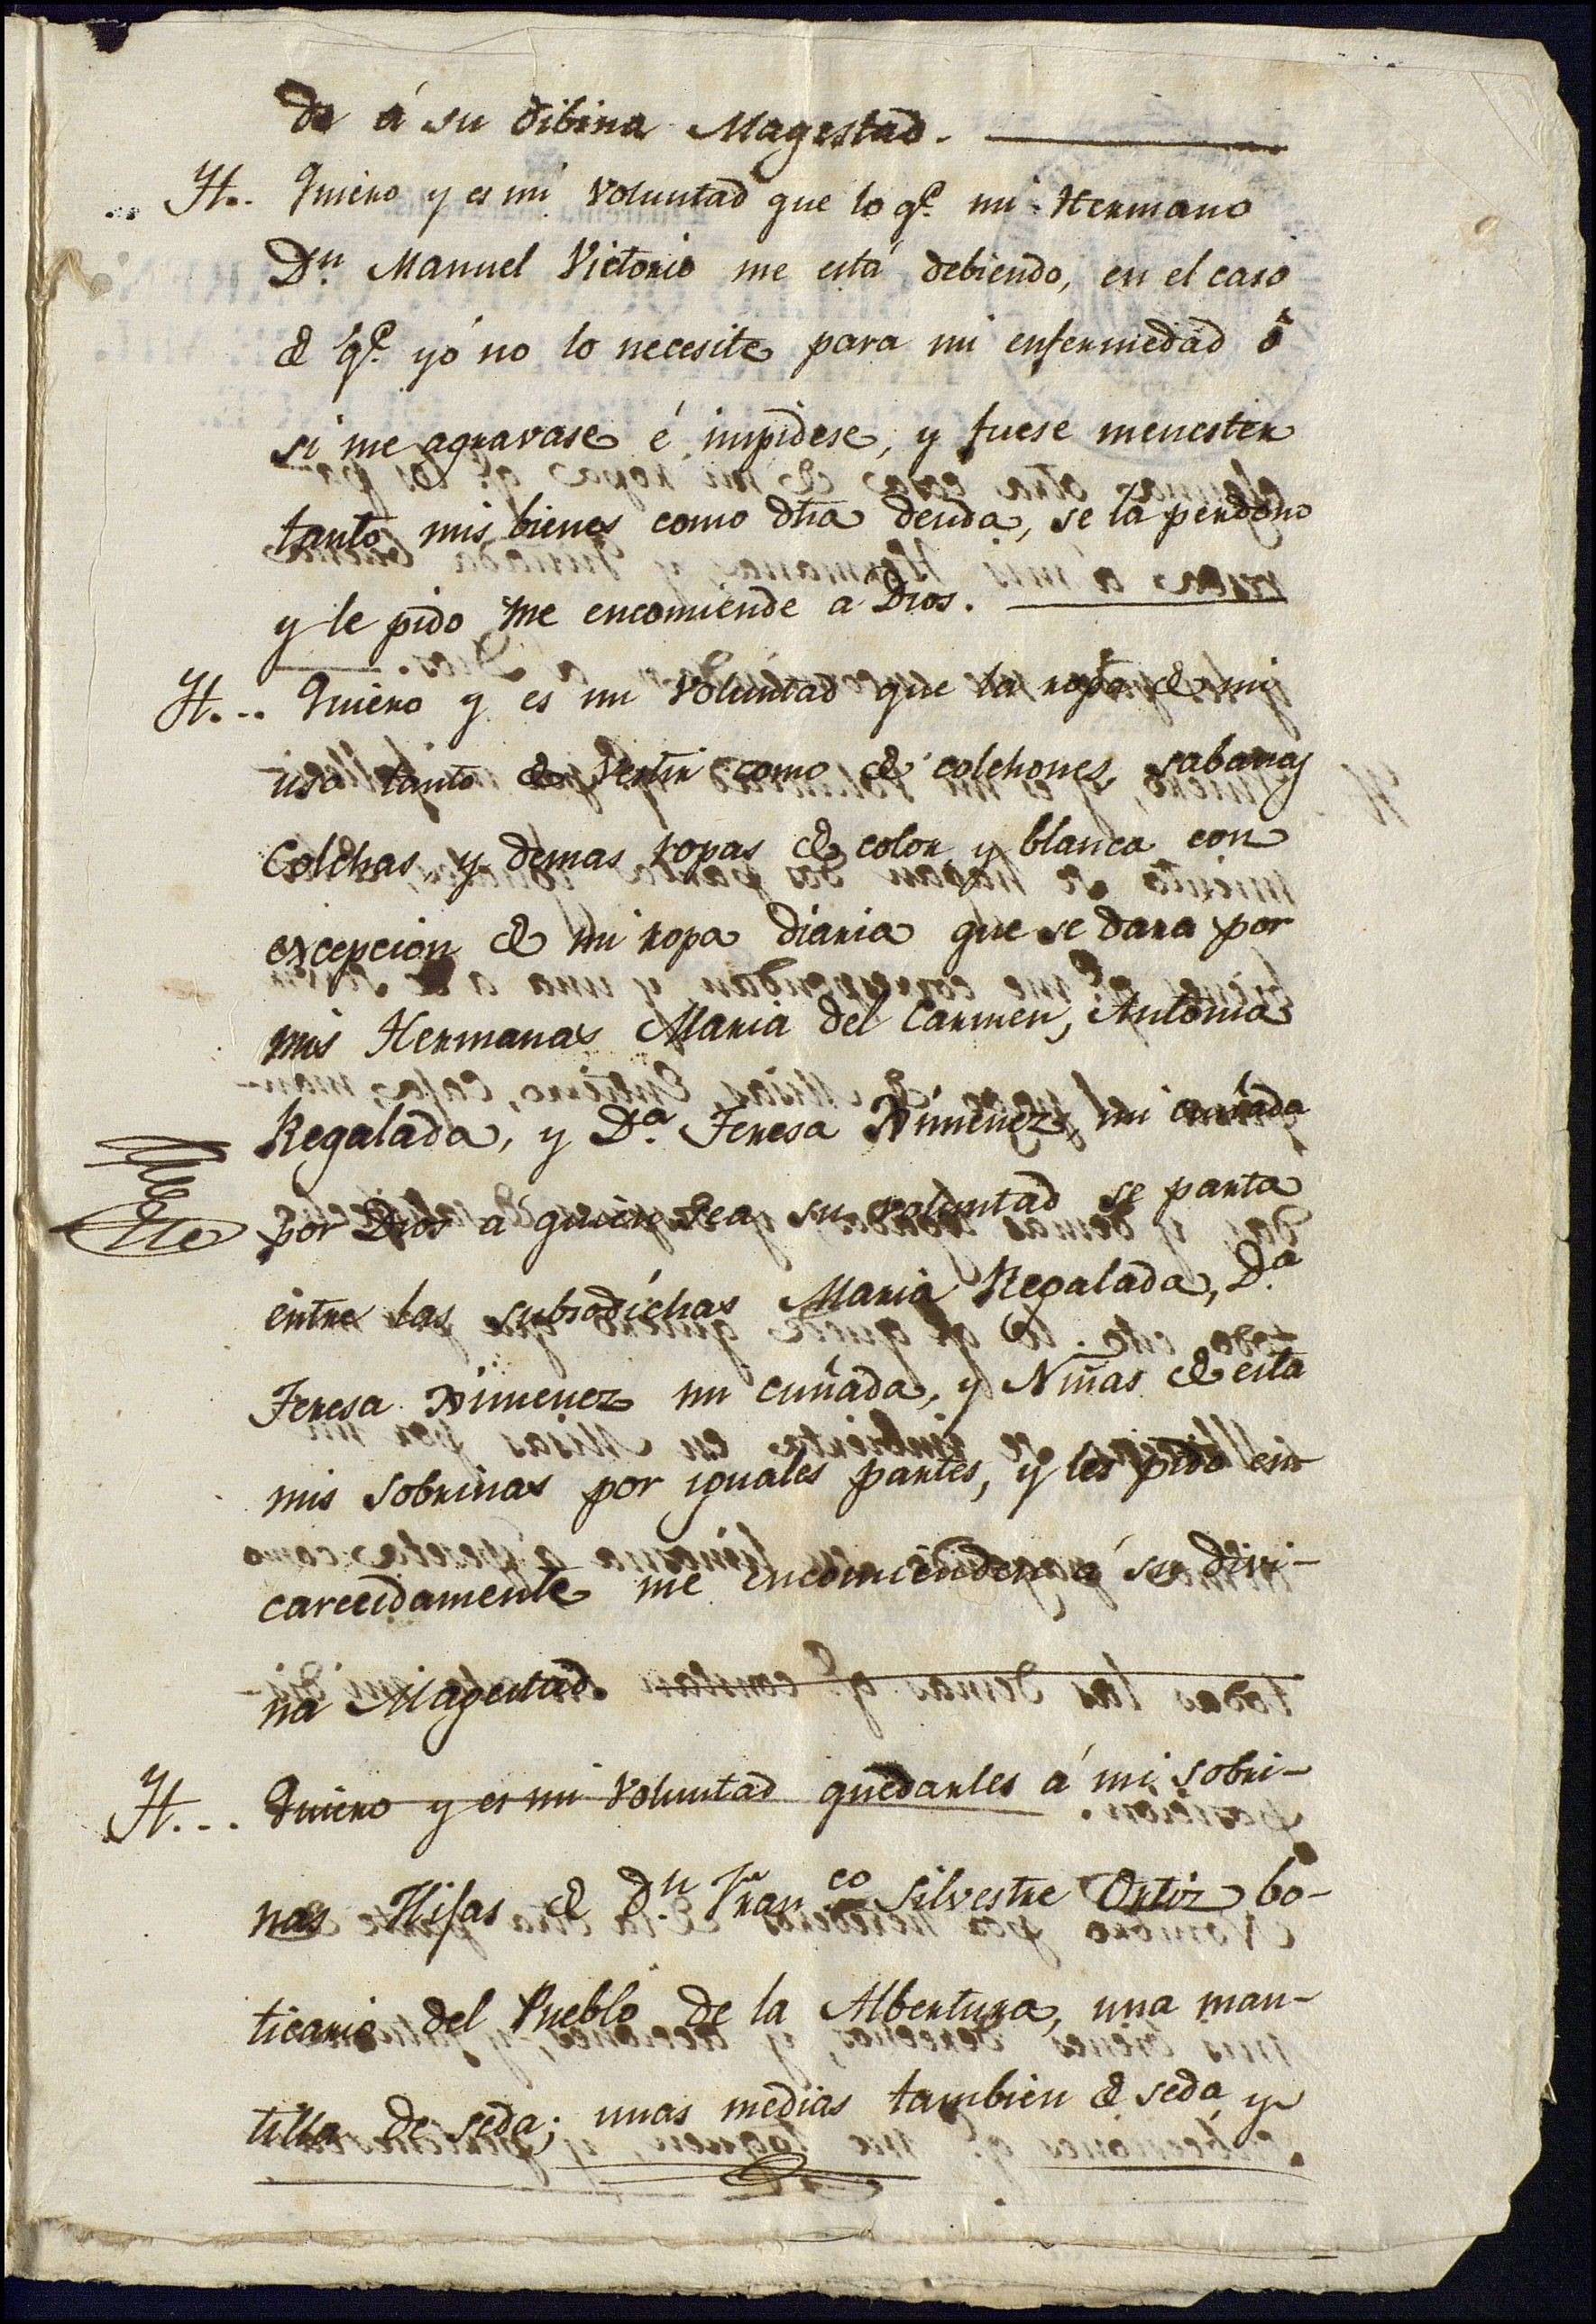 do á su dibina Magestad.
Yt.. Quiero y es mi voluntad que lo qe. mi Hermano
Dn. Manuel Victorio me está debiendo, en el caso
de qe. yó no lo necesite para mi enfermedad ó
si me agravase é impidese, y fuese menester
tanto mis bienes como dha deuda, se la perdono
y le pido me encomiende a Dios.
Yt... Quiero y es mi voluntad que la ropa de mi
uso tanto de vestir como de colchones, sabanas
Colchas, y demas ropas de color y blanca con
excepcion de mi ropa diaria que se dara por
mis Hermanas Maria del Carmen, Antonia
Regalada, y Da. Teresa Ximenez, mi cuñada
por Dios á quien sea su voluntad se parta
entre las subsodichas Maria Regalada, Da.
Teresa Ximenez mi cuñada, y Niñas de esta
mis sobrinas por iguales partes, y les pido en-
carecidamente me encomienden á su divi-
na Magestad.
Yt... Quiero y es mi voluntad quedarles á mi sobri-
nas Hijas de Dn. Franco Silvestre Ortiz bo-
ticario del Pueblo de la Albertura, una man-
tilla de seda; unas medias tambien de seda y